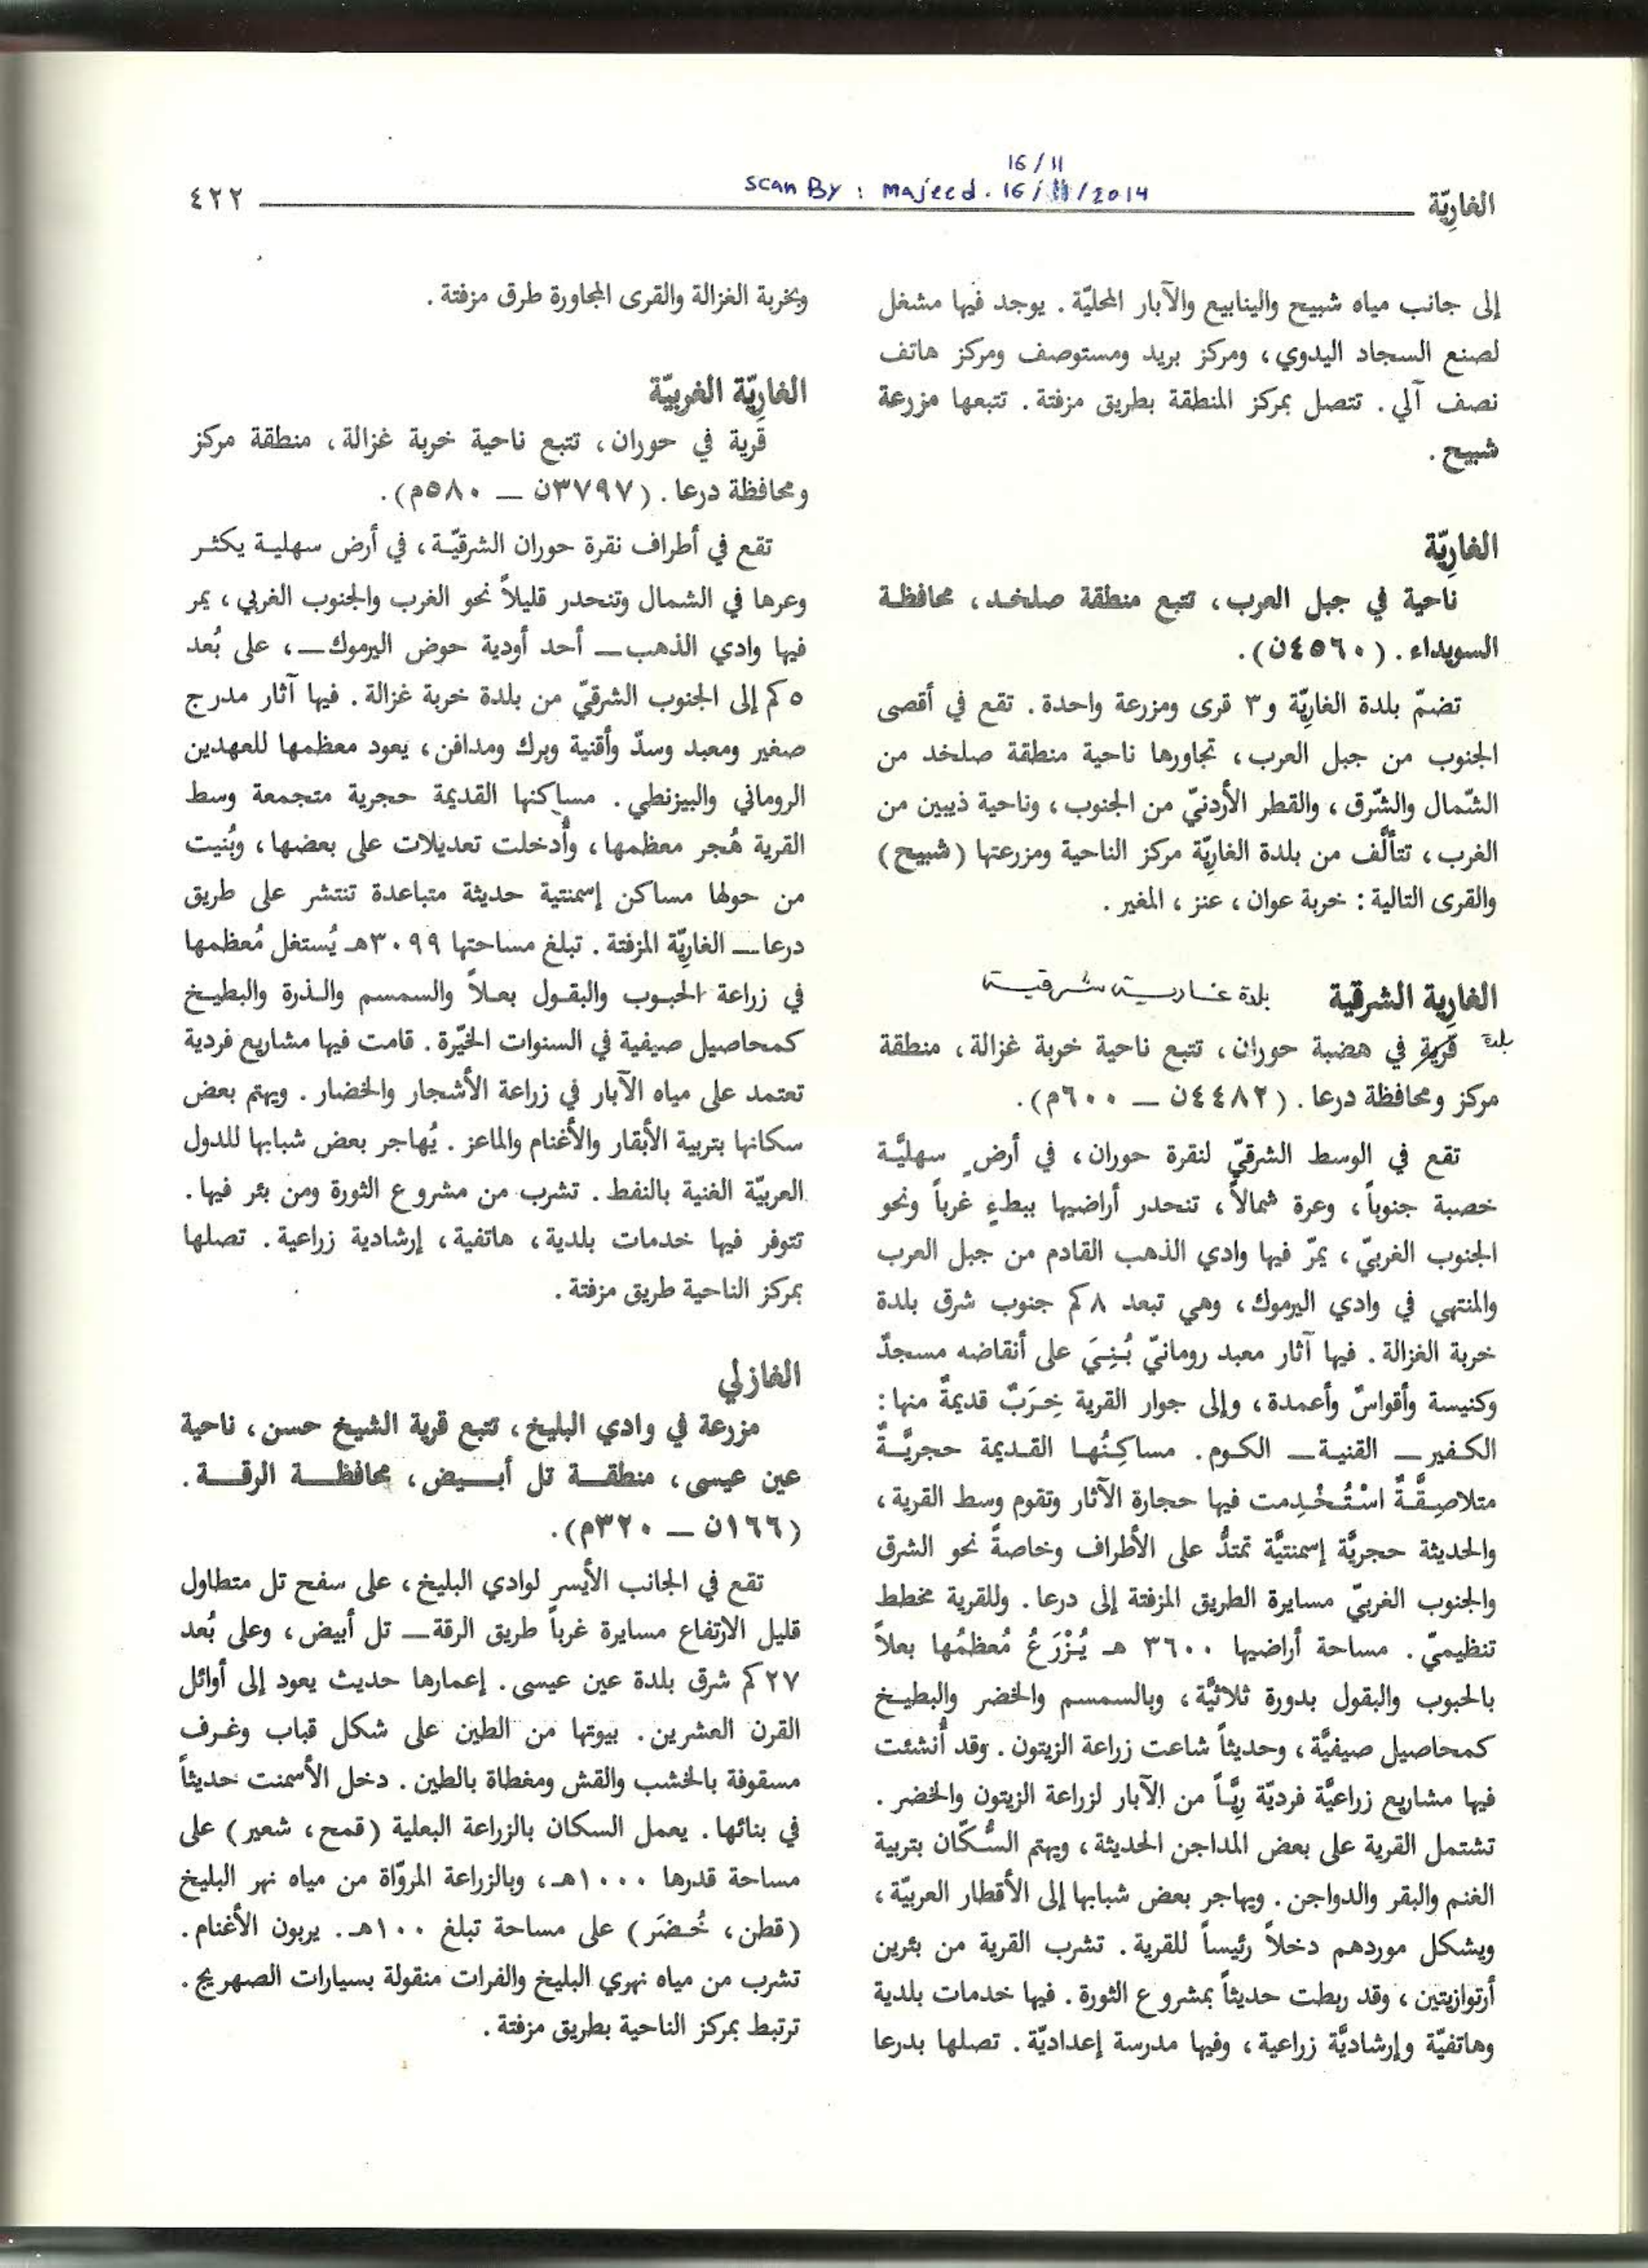 16/11
scan By : majeed. 16/11/2014
الغارِيّة
٤٢٢
إلى جانب مياه شبيح والينابيع والآبار المحليّة. يوجد فيها مشغل
لصنع السجاد اليدوي، ومركز بريد ومستوصف ومركز هاتف
نصف آلي. تتصل بمركز المنطقة بطريق مزفتة. تتبعها مزرعة
شبيح.
الغارِيّة
ناحية في جبل العرب، تتبع منطقة صلخد، محافظة
السويداء. (٤٥٦٠ن).
تضمّ بلدة الغارِيّة و٣ قرى ومزرعة واحدة. تقع في أقصى
الجنوب من جبل العرب، تجاورها ناحية منطقة صلخد من
الشّمال والشّرق، والقطر الأردنيّ من الجنوب، وناحية ذيبين من
الغرب، تتألّف من بلدة الغارِيّة مركز الناحية ومزرعتها (شبيح)
والقرى التالية: خربة عوان، عنز، المغير.
الغارِية الشرقية بلدة غارية شرقية
بلدة
قرية في هضبة حوران، تتبع ناحية خربة غزالة، منطقة
مركز ومحافظة درعا. (٤٤٨٢ن — ٦٠٠م).
تقع في الوسط الشرقيّ لنقرة حوران، في أرضٍ سهليَّة
خصبة جنوباً، وعرة شمالاً، تنحدر أراضيها ببطءٍ غرباً ونحو
الجنوب الغربيّ، يمرّ فيها وادي الذهب القادم من جبل العرب
والمنتهي في وادي اليرموك، وهي تبعد ٨كم جنوب شرق بلدة
خربة الغزالة. فيها آثار معبد رومانيّ بُنِيَ على أنقاضه مسجدٌ
وكنيسة وأقواسٌ وأعمدة، وإلى جوار القرية خِرَبٌ قديمةٌ منها:
الكفير— القنية— الكوم. مساكِنُها القديمة حجريَّةٌ
متلاصِقَّةٌ اسْتُخْدِمت فيها حجارة الآثار وتقوم وسط القرية،
والحديثة حجريَّة إسمنتيَّة تمتدُّ على الأطراف وخاصةً نحو الشرق
والجنوب الغربيّ مسايرة الطريق المزفتة إلى درعا. وللقرية مخطط
تنظيميّ. مساحة أراضيها ٣٦٠٠ هـ يُزْرَعُ مُعظمُها بعلاً
بالحبوب والبقول بدورة ثلاثيَّة، وبالسمسم والخضر والبطيخ
كمحاصيل صيفيَّة، وحديثاً شاعت زراعة الزيتون. وقد أُنشئت
فيها مشاريع زراعيَّة فرديّة رِيَّاً من الآبار لزراعة الزيتون والخضر.
تشتمل القرية على بعض المداجن الحديثة، ويهتم السُّكّان بتربية
الغنم والبقر والدواجن. ويهاجر بعض شبابها إلى الأقطار العربيّة،
ويشكل موردهم دخلاً رئيساً للقرية. تشرب القرية من بئرين
أرتوازيتين، وقد ربطت حديثاً بمشروع الثورة. فيها خدمات بلدية
وهاتفيّة وإرشاديَّة زراعية، وفيها مدرسة إعداديّة. تصلها بدرعا
وبخربة الغزالة والقرى المجاورة طرق مزفتة.
الغارِيّة الغربيّة
قرية في حوران، تتبع ناحية خربة غزالة، منطقة مركز
ومحافظة درعا. (٣٧٩٧ن — ٥٨٠م).
تقع في أطراف نقرة حوران الشرقيّة، في أرض سهلية يكثر
وعرها في الشمال وتنحدر قليلاً نحو الغرب والجنوب الغربي، يمر
فيها وادي الذهب— أحد أودية حوض اليرموك—، على بُعد
٥كم إلى الجنوب الشرقيّ من بلدة خربة غزالة. فيها آثار مدرج
صغير ومعبد وسدّ وأقنية وبرك ومدافن، يعود معظمها للعهدين
الروماني والبيزنطي. مساكنها القديمة حجرية متجمعة وسط
القرية هُجر معظمها، وأُدخلت تعديلات على بعضها، وبُنيت
من حولها مساكن إسمنتية حديثة متباعدة تنتشر على طريق
درعا— الغارِيّة المزفتة. تبلغ مساحتها ٣٠٩٩هـ يُستغل مُعظمها
في زراعة الحبوب والبقول بعلاً والسمسم والذرة والبطيخ
كمحاصيل صيفية في السنوات الخيّرة. قامت فيها مشاريع فردية
تعتمد على مياه الآبار في زراعة الأشجار والخضار. ويهتم بعض
سكانها بتربية الأبقار والأغنام والماعز. يُهاجر بعض شبابها للدول
العربيّة الغنية بالنفط. تشرب من مشروع الثورة ومن بئر فيها.
تتوفر فيها خدمات بلدية، هاتفية، إرشادية زراعية. تصلها
بمركز الناحية طريق مزفتة.
الغازلي
مزرعة في وادي البليخ، تتبع قرية الشيخ حسن، ناحية
عين عيسى، منطقة تل أبيض، محافظة الرقة.
(١٦٦ن — ٣٢٠م).
تقع في الجانب الأيسر لوادي البليخ، على سفح تل متطاول
قليل الارتفاع مسايرة غرباً طريق الرقة— تل أبيض، وعلى بُعد
٢٧كم شرق بلدة عين عيسى. إعمارها حديث يعود إلى أوائل
القرن العشرين. بيوتها من الطين على شكل قباب وغرف
مسقوفة بالخشب والقش ومغطاة بالطين. دخل الأسمنت حديثاً
في بنائها. يعمل السكان بالزراعة البعلية (قمح، شعير) على
مساحة قدرها ١٠٠٠هـ، وبالزراعة المروّاة من مياه نهر البليخ
(قطن، خُضَر) على مساحة تبلغ ١٠٠هـ. يربون الأغنام.
تشرب من مياه نهري البليخ والفرات منقولة بسيارات الصهريج.
ترتبط بمركز الناحية بطريق مزفتة.